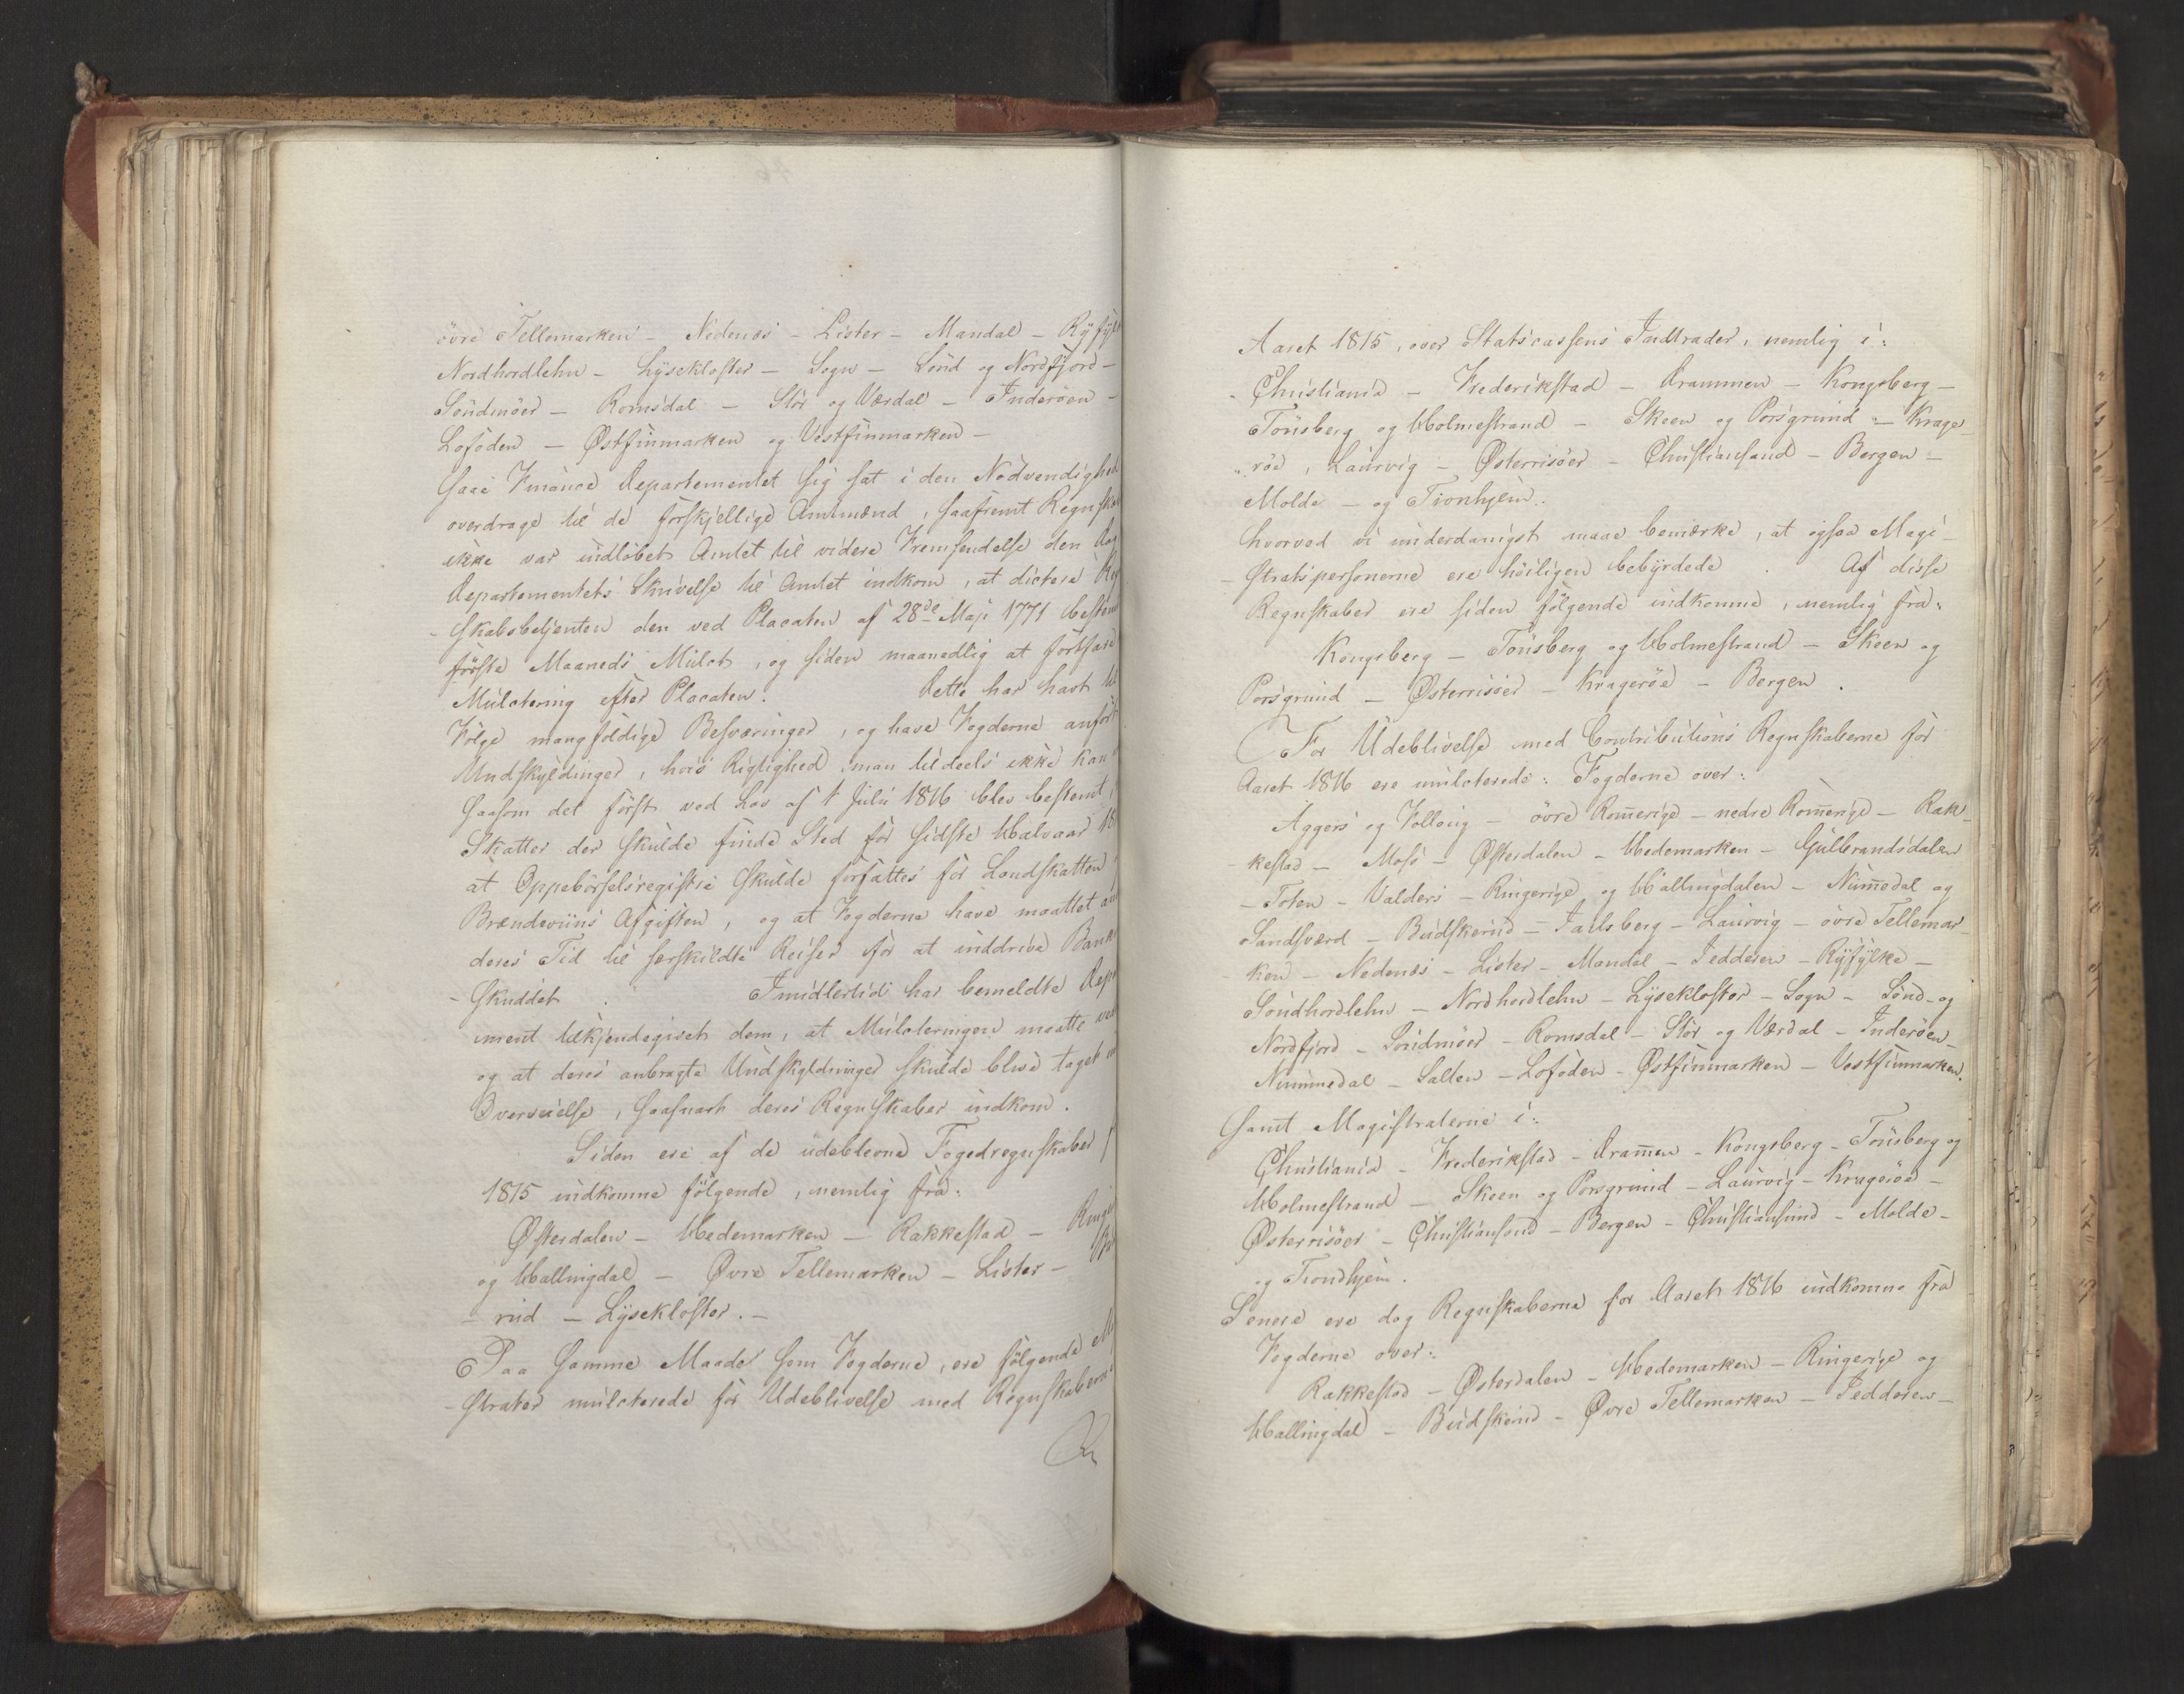 övre Tellemarken - Nedenæs - Lister - Mandal - Ryfyl
Nordhordlehn - Lysekloster - Sogn - Sönd og Nordfjord -
Söndmöer - Romsdal - Stör og Værdal - Inderöen -
Lofoden - Østfinmarken og Vestfinmarken -
saae Finance Departementet sig sat i den Nödvendighed
overdrage til de forskjellige Amtmænd, saafremt Regnska
ikke var indlöbet Amtet til videre Fremsendelse den Dag
Departementets Skrivelse til Amtet indkom, at dictere Reg
- skabsbetjenten den ved Placaten af 28de Maji 1771 bestem
förste Maaneds Mulct, og siden maanedlig at fortfare
Mulctering efter Placaten. Dette har havt til
Fölge mangfoldige Besværinger, og have Fogderne anfört
Undskyldninger, hvis Rigtighed man tildeels ikke kan
saasom det först ved Lov af 1 Julii 1816 blev bestemt,
Skatter der skulde finde Sted for sidste Halvaar 18
at Oppebörselsregistre skulde forfattes for Landskatten
Brændeviins Afgiften, og at Fogderne have maattet an
deres Tid til særskildte Reiser for at inddrive Bank
- skuddet. Imidlertid har bemeldte Dep
ment tilkjendegivet dem, at Mulcteringen maatte ved
og at deres anbragte Undskyldninger skulde blive taget i
Overveielse, saasnart deres Regnskaber indkom.
Siden ere af de udeblevne Fogedregnskaber f
1815 indkomne fölgende, nemlig fra:
Østerdalen - Hedemarken - Rakkestad - Ringe
og Hallingdal - Øvre Tellemarken - Lister -
- rud - Lysekloster. -
Paa samme Maade som Fogderne, ere fölgende Ma
- strater mulcterede for Udeblivelse med Regnskaberne
Aaret 1815, over Statscassens Indtrader, nemlig i:
- Christiania - Frederikstad - Drammen - Kongsberg -
Tönsberg og Holmestrand - Skeen og Porsgrund - Krage
röe, Laurvig - Østerrisöer - Christiansand - Bergen -
Molde - og Tronhjem.
hvorved vi underdanigst maae bemærke, at ogsaa Magi-
- stratspersonerne ere höiligen bebyrdede. Af disse
Regnskaber ere siden fölgende indkomne, nemlig fra:
Kongsberg - Tönsberg og Holmestrand - Skeen og
Porsgrund - Østerrisöer - Krageröe - Bergen.
For Udeblivelse med Contributions Regnskaberne for
Aaret 1816 ere mulcterede: Fogderne over:
Aggers og Folloug - övre Rom̄erige - nedre Rom̄erige - Rak-
kestad - Moss - Østerdalen - Hedemarken - Gulbrandsdalen
- Toten - Valders - Ringerige og Hallingdalen - Num̄edal og
Sandsværd - Budskerud - Jarlsberg - Laurvig - övre Tellemar-
ken - Nedenæs - Lister - Mandal - Jedderen - Ryfylke -
Söndhordlehn - Nordhordlehn - Lysekloster - Sogn - Sönd- og
Nordfjord - Söndmöer - Romsdal - Stör og Værdal - Inderöen -
Nummedal - Salten - Lofoden - Østfinmarken - Vestfinmarken.
samt Magistraterne i:
Christiania - Frederikstad - Dram̄en - Kongsberg - Tönsberg og
Holmestrand - Skeen og Porsgrund - Laurvig - Kragerøe -
Østerrisöer - Christiansand - Bergen - Christiansund - Molde -
og Trondhjem.
Senere ere dog Regnskaberne for Aaret 1816 indkomne fra
Fogderne over:
Rakkestad - Østerdalen - Hedemarken - Ringerige og
Hallingdal - Budskerud - Øvre Tellemarken - Jedderen -